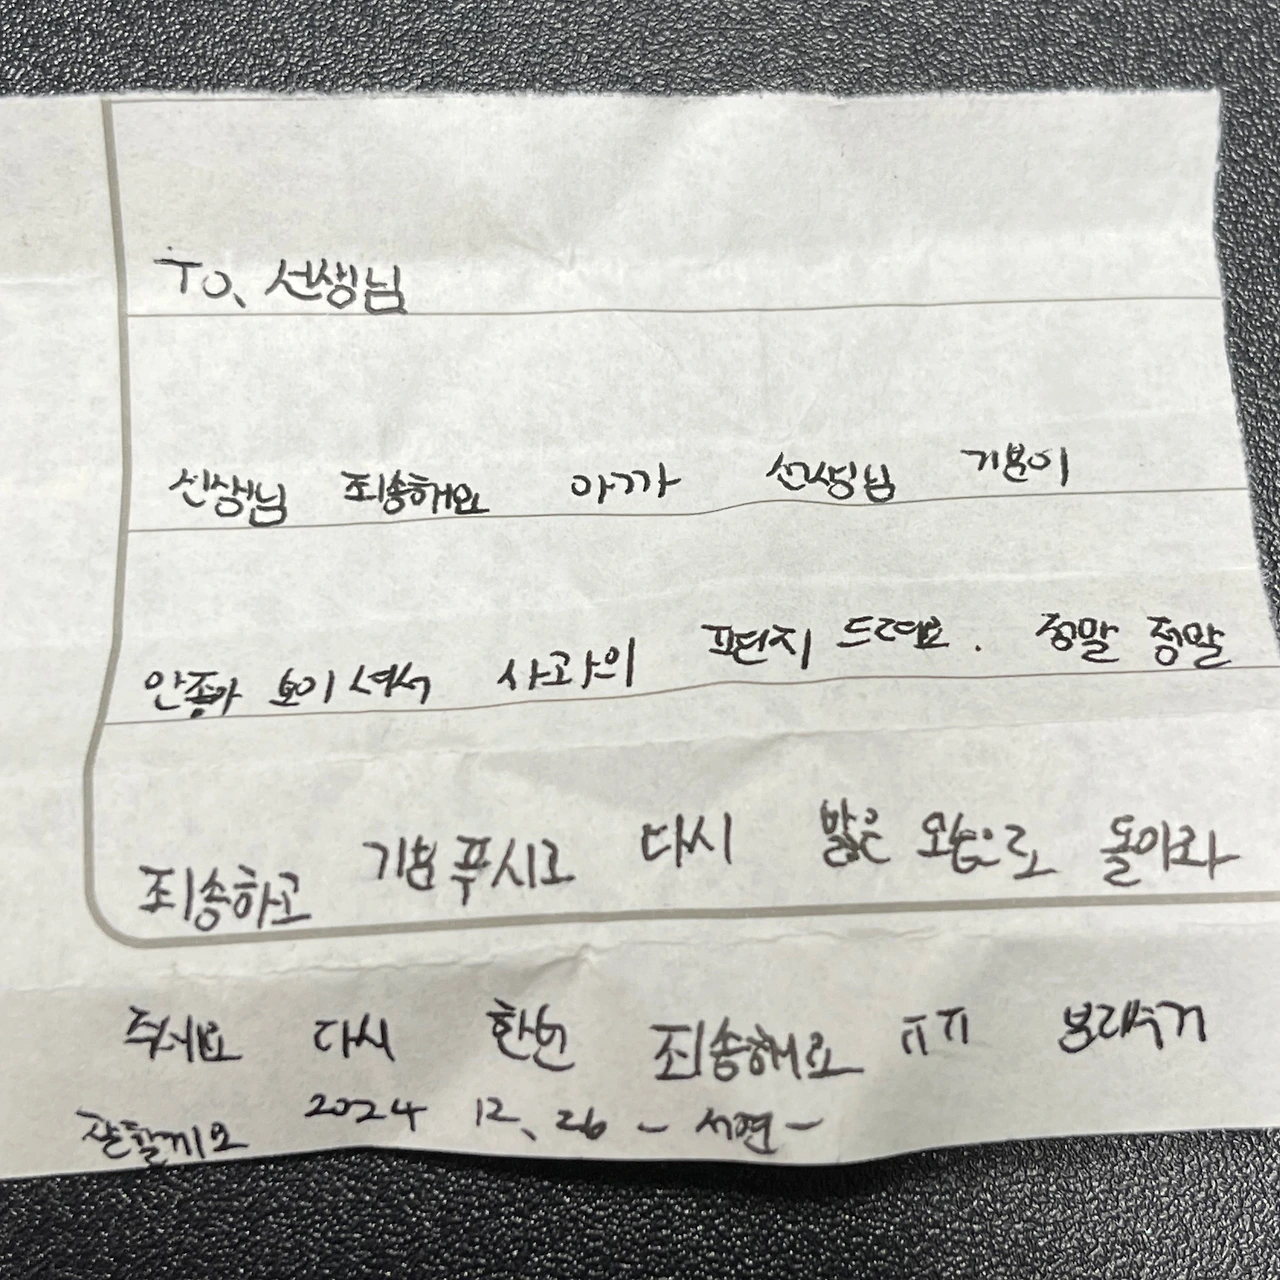 To, 선생님
선생님 죄송해요 아까 선생님 기분이
안좋아 보이셔서 사과의 편지 드려요. 정말 정말
죄송하고 기분 푸시고 다시 밝은 모습으로 돌아와
주세요 다시 한번 죄송해요 ㅠㅠ
잘할게요 2024 12, 26 - 서연 -